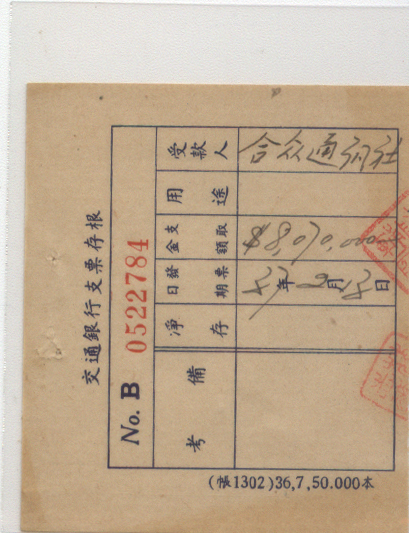 交通銀行支票存根
No. B 0522784
受款人 合众通訊社
用途
支取金額 $8,070,000
發票日期 37年2月18日
淨存
備考
(帳1302)36,7,50.000本